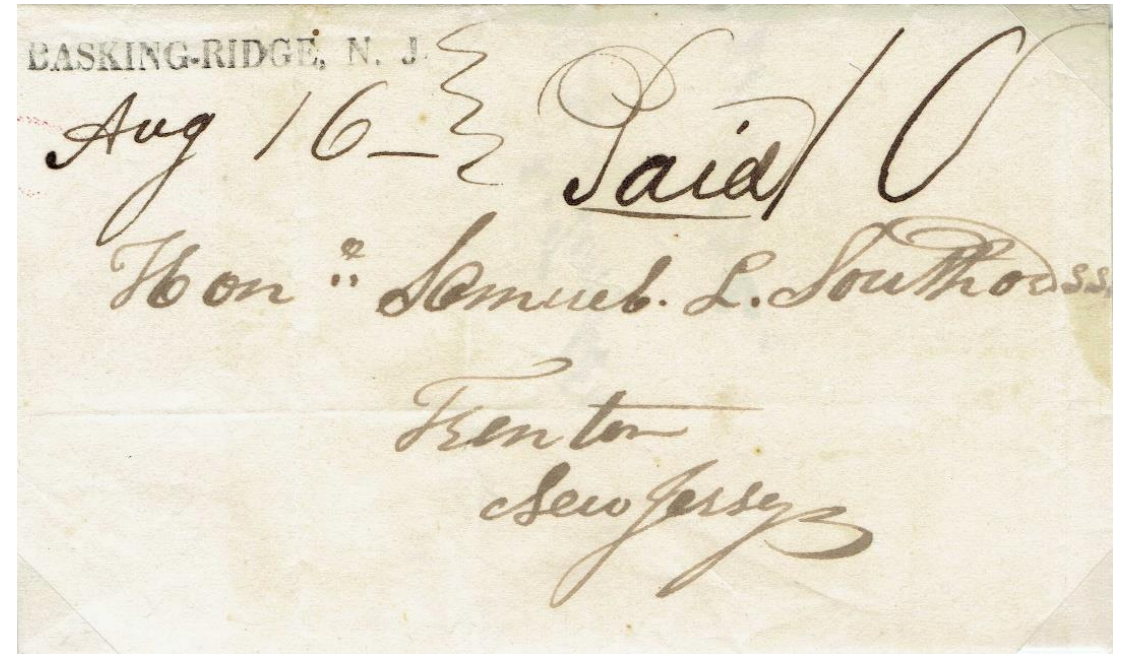 BASKING-RIDGE, N. J.
Aug 16 Paid 10
Hon.e Samuel. L. Southard
Trenton
New Jersey